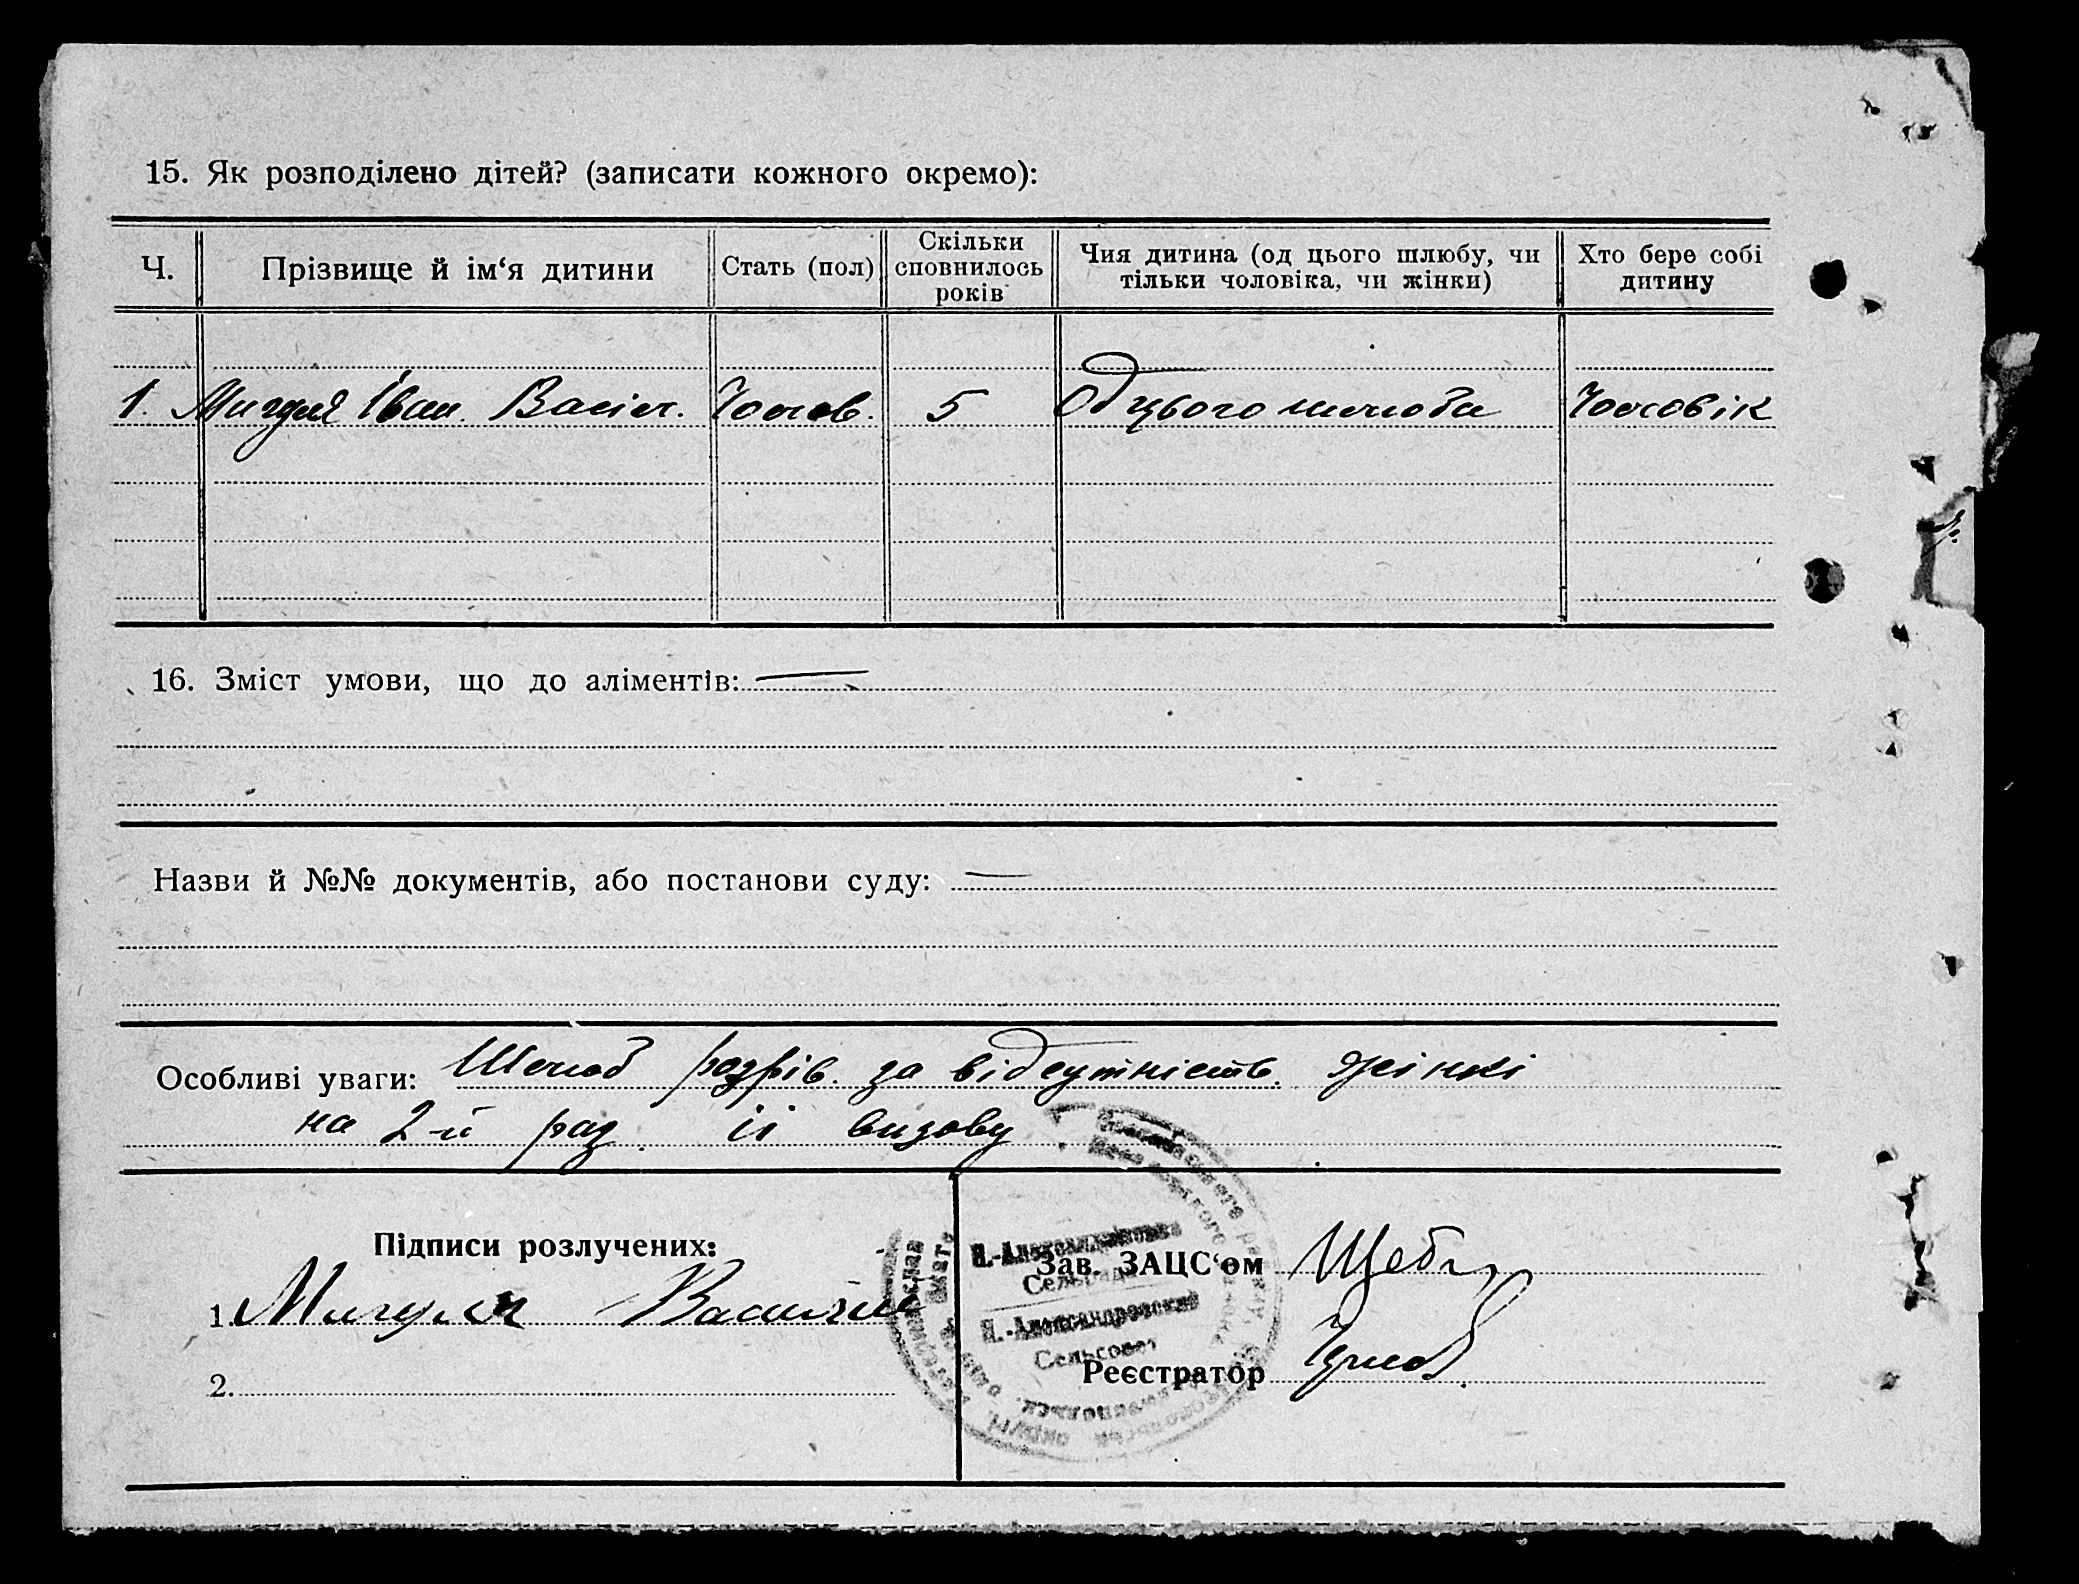 15. Як розподілено дітей? (записати кожного окремо):
Ч. Прізвище й ім‘я дитини Стать (пол) Скільки сповнилось років Чия дитина (од цього шлюбу, чи тільки чоловіка, чи жінки) Хто бере собі дитину
1. Мигуля Іван Васил. Чолов. 5 Од цього шлюба Чоловік
16. Зміст умови, що до аліментів: —
Назви й №№ документів, або постанови суду: —
Особливі уваги: Шлюб розрів. за відсутність жінкі
на 2-й раз іі визову
Підписи розлучених:
1. Мигуля
2.
Н.-Александровский
Сельсовет
Зав. ЗАЦС‘ом
Реєстратор